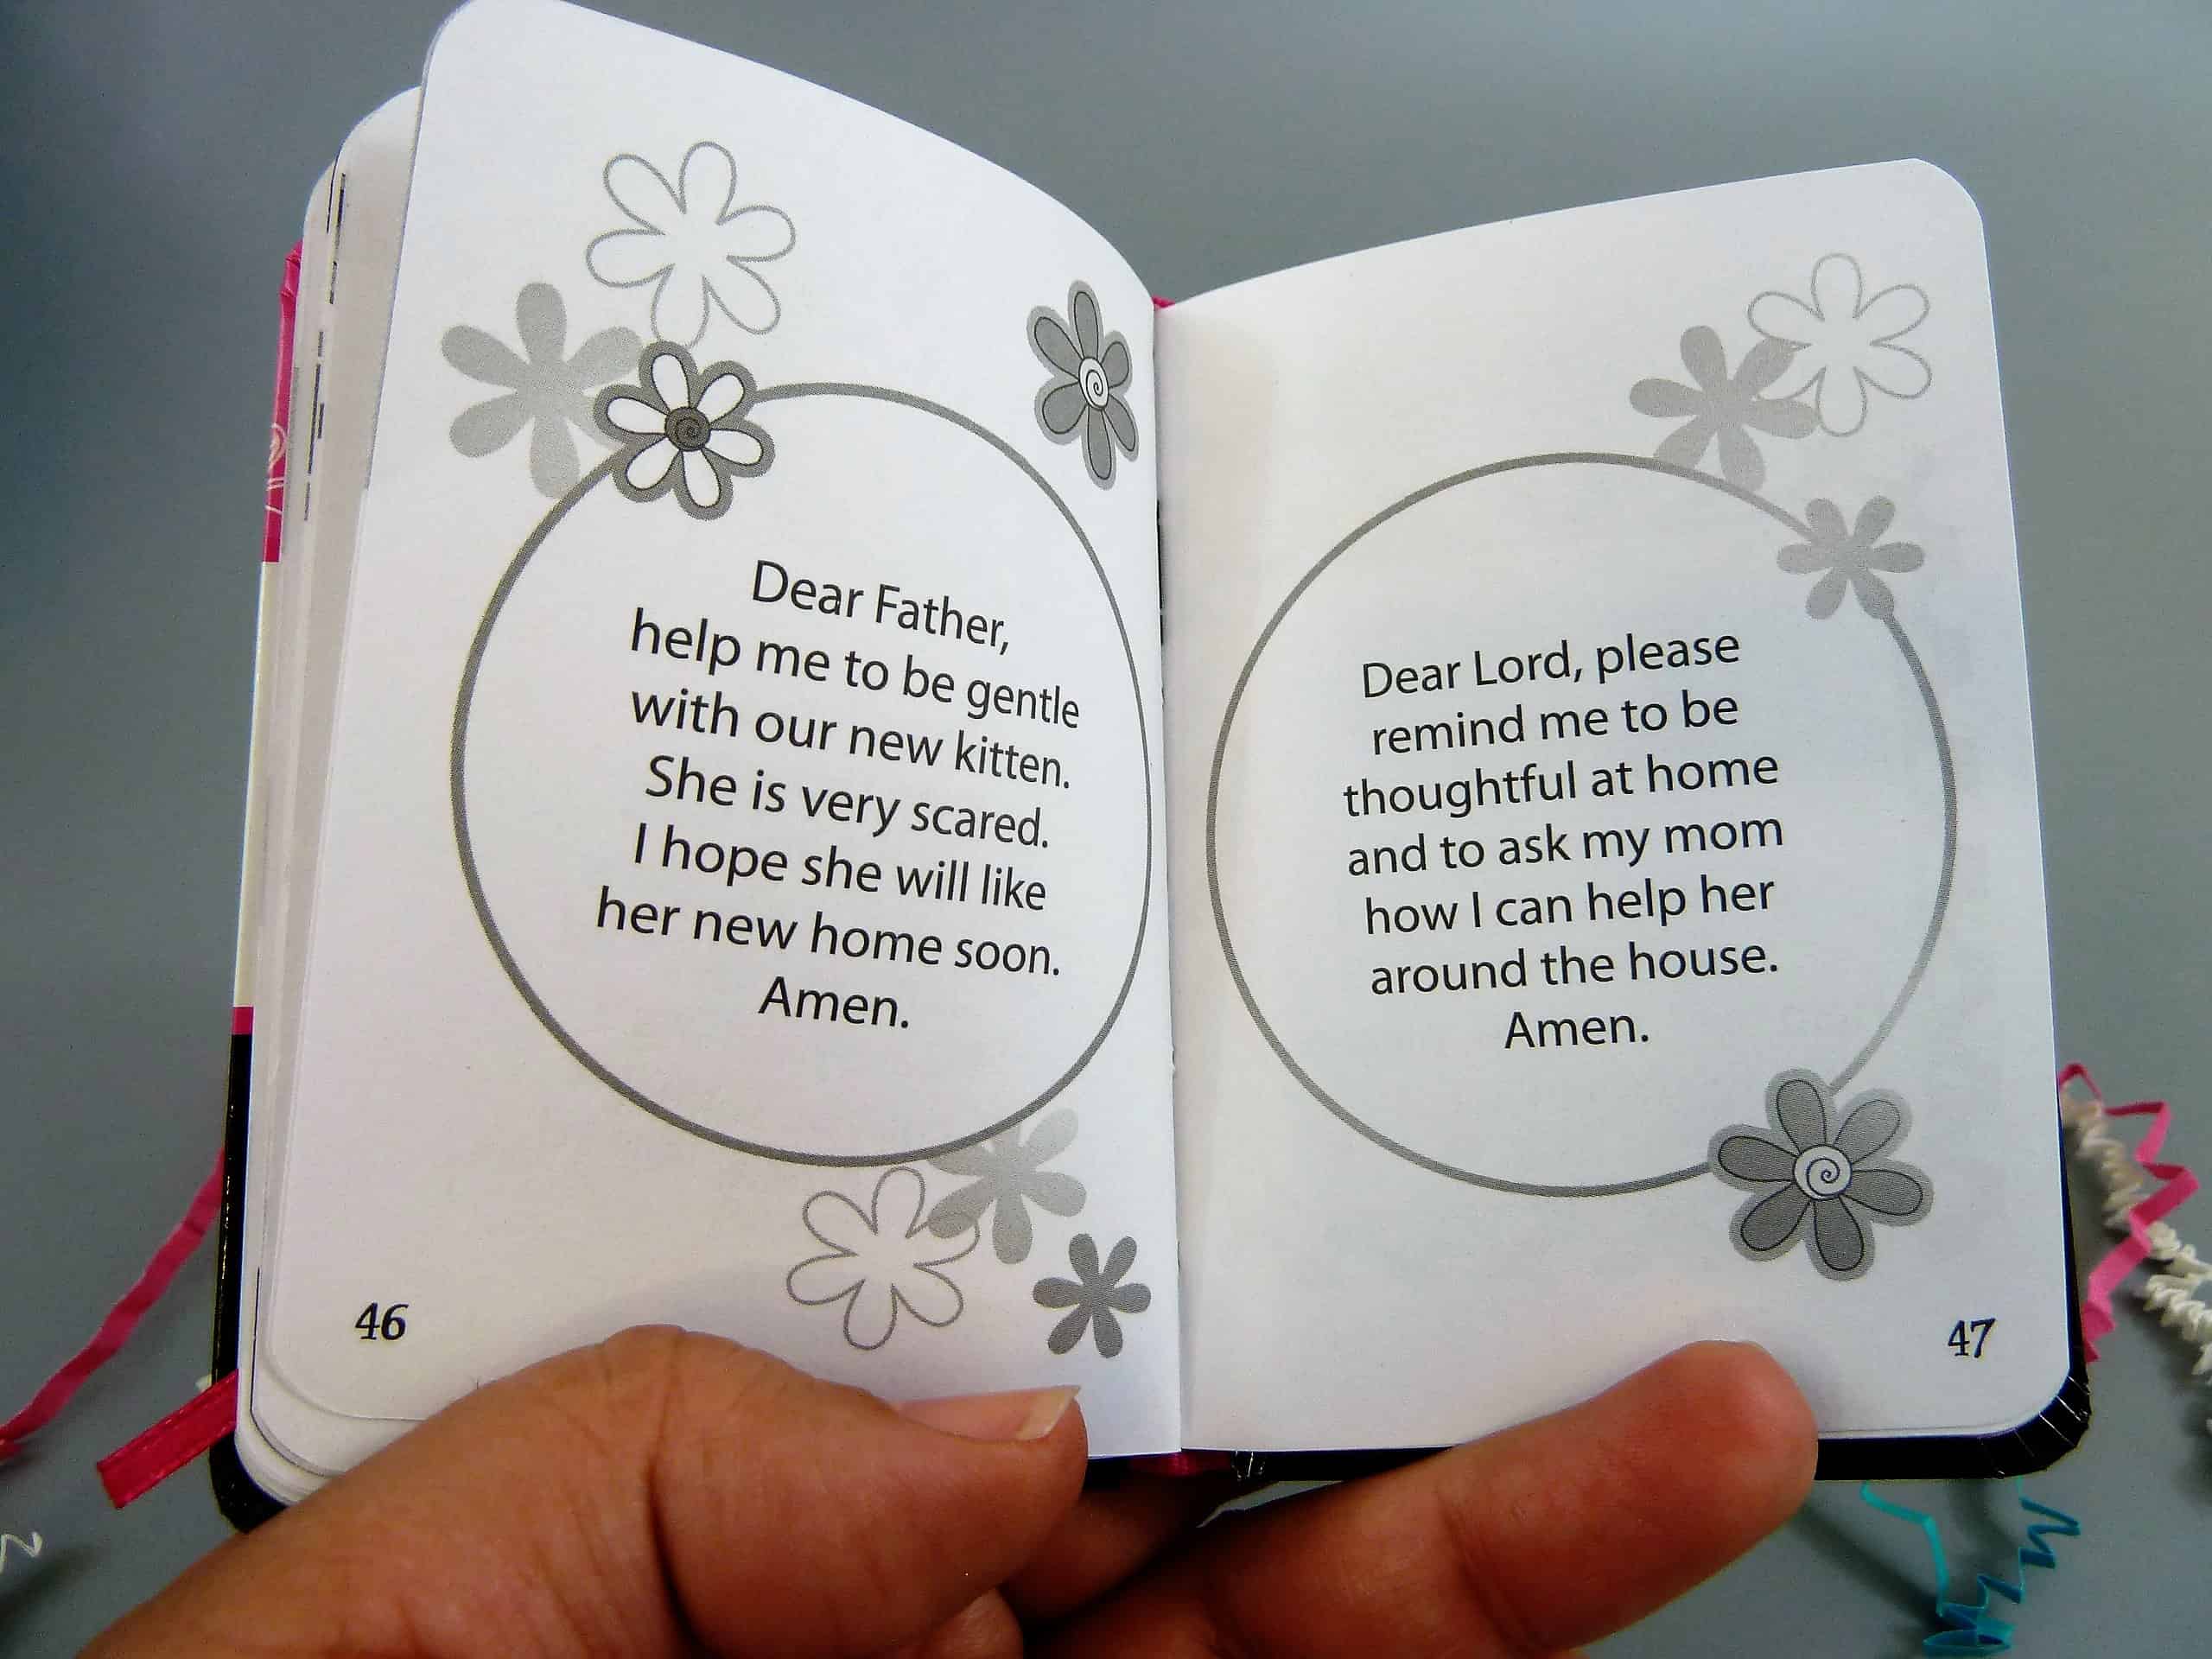 Dear Father,
help me to be gentle
with our new kitten.
She is very scared.
I hope she will like
her new home soon.
Amen.
46
Dear Lord, please
remind me to be
thoughtful at home
and to ask my mom
how I can help her
around the house.
Amen.
47